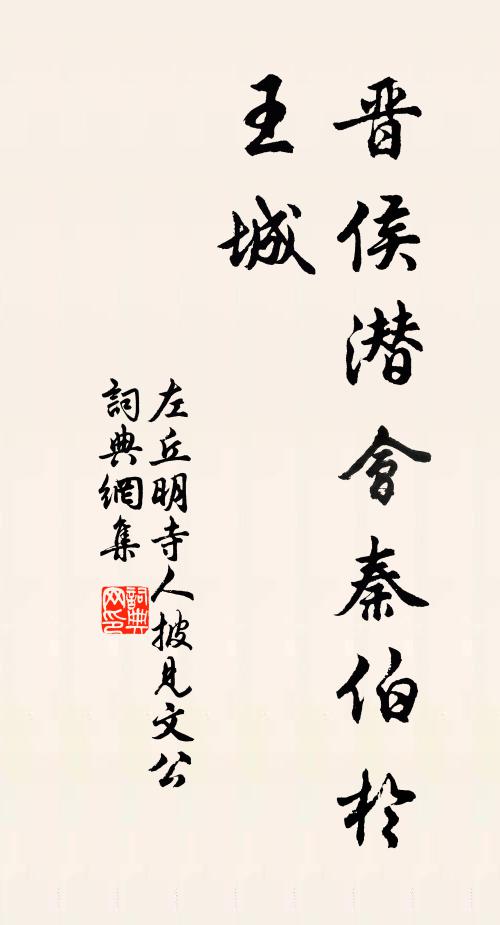 晋侯潛會秦伯於
王城
左丘明寺人披見文公
詞典網集
詞典
网印